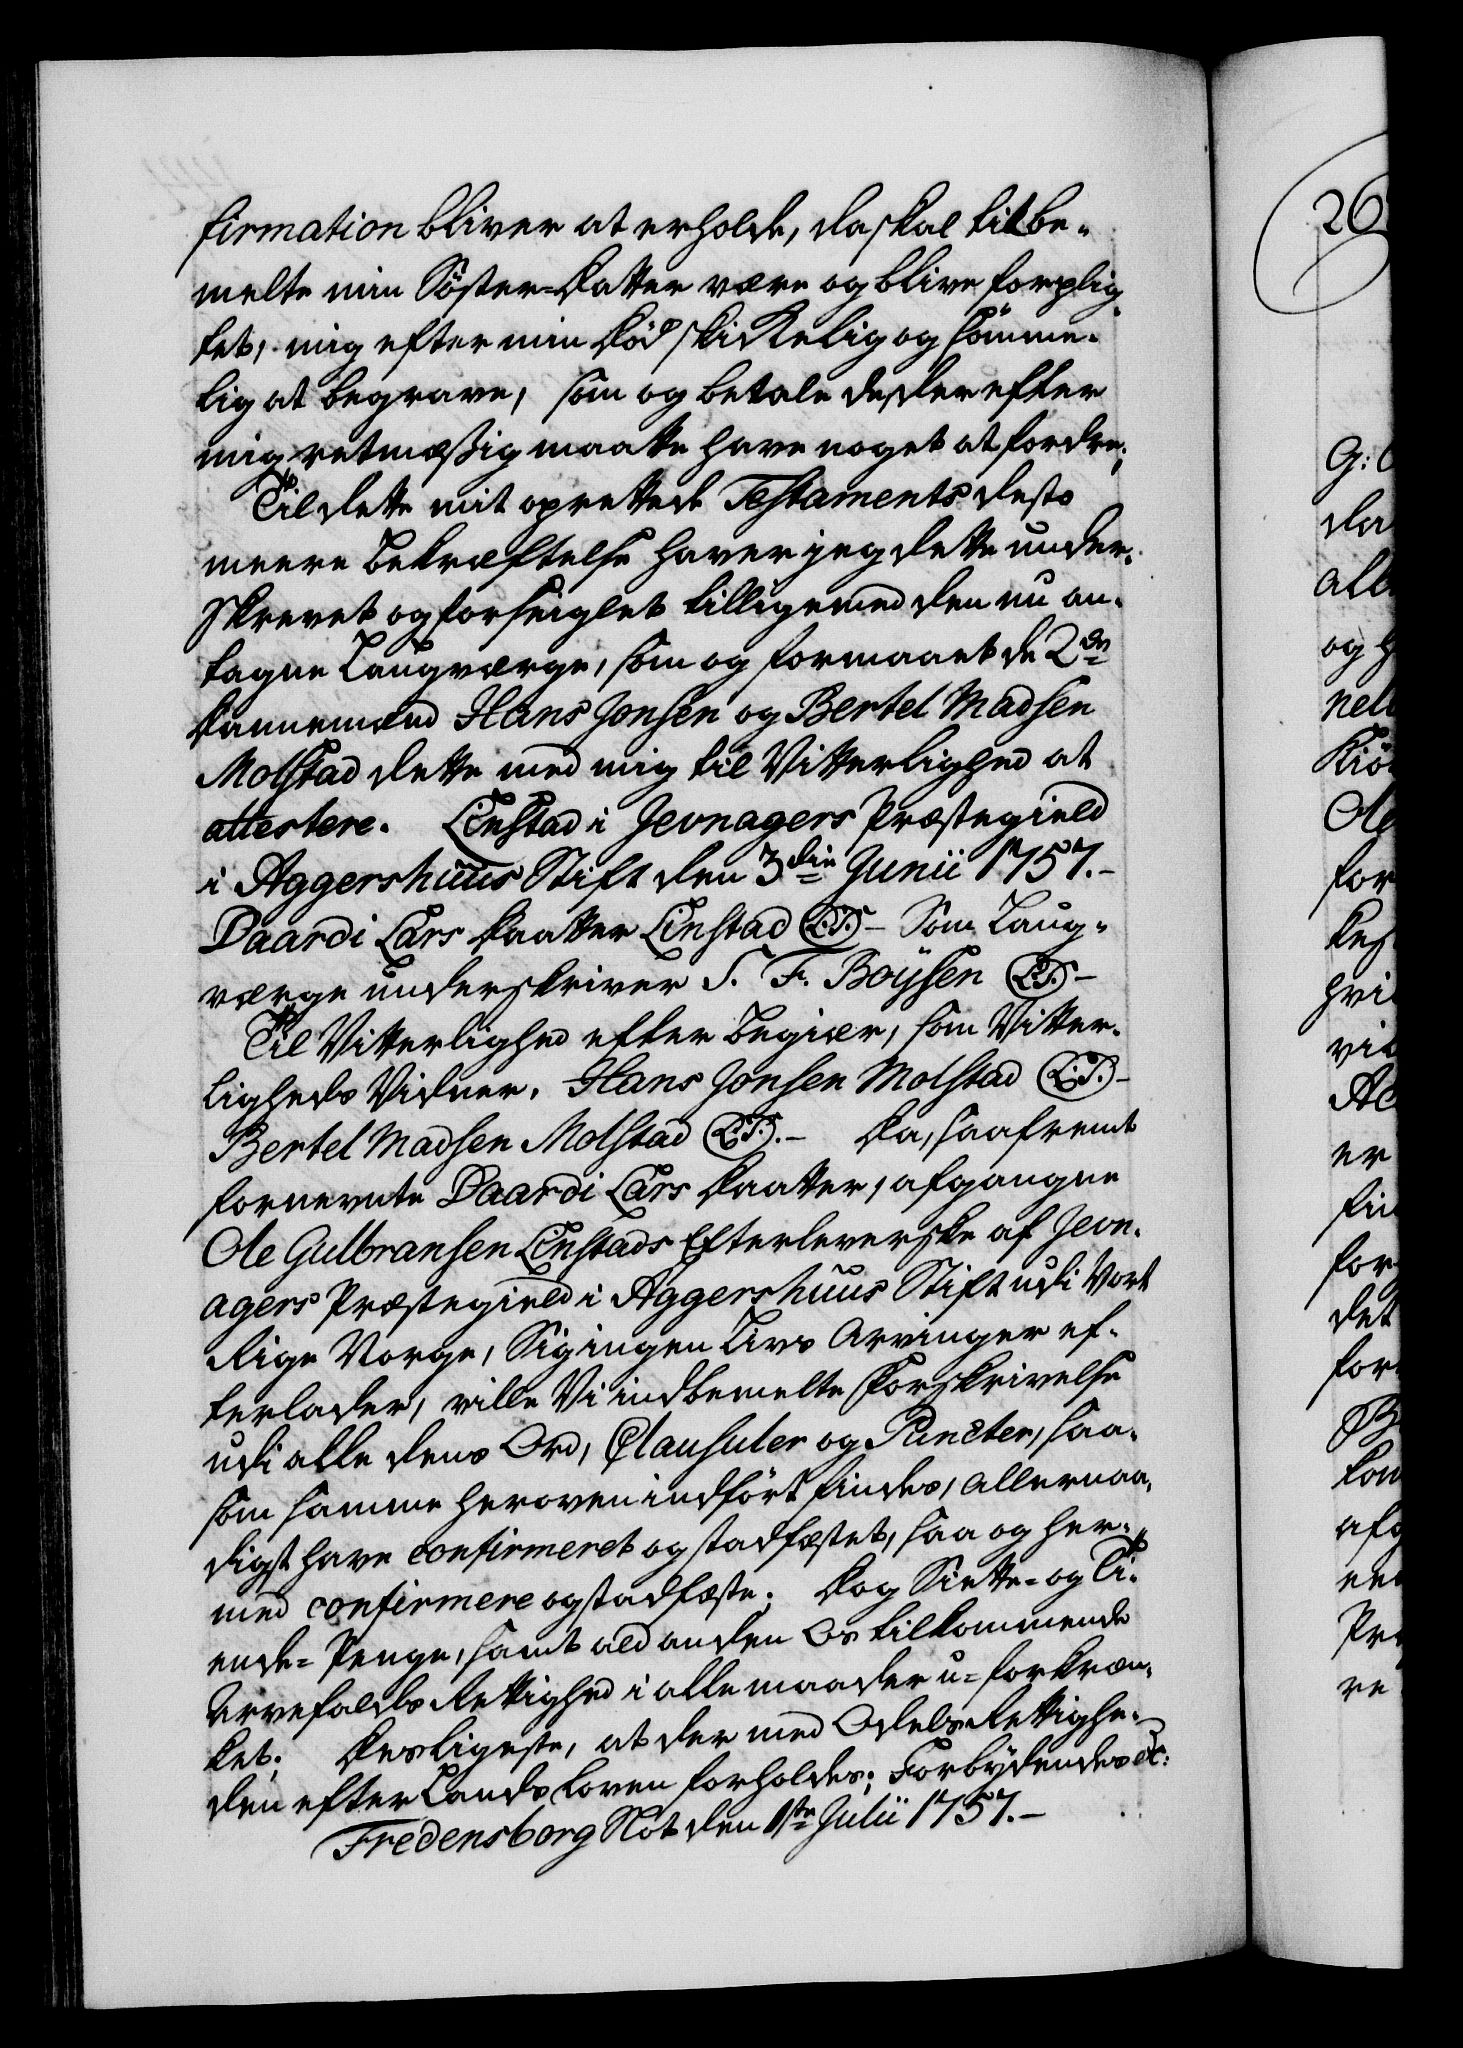 firmation bliver at erholde, da skal titbe-
melte min Söster-Datter være og blive forplig-
tet, mig efter min Död skickelig og sömme-
lig at begrave, som og betale des der efter
mig retmæssig maatte have noget at fordre;
Til dette mit oprettede Testaments desto
meere Bekræftelse haver jeg dette under-
skrevet og forseiglet tilligemed den nu an-
tagne Laugværge, som og formaaet de 2de
Dannemænd Hans Jonsen og Bertel Madsen
Molstad dette med mig til Vitterlighed at
attestere. Linstad i Jevnagers Præstegield
i Aggershuus Stift den 3die Junii 1757.-
Daardi Lars Daatter Linstad (L.S.)- Som Laug-
værge underskriver S. F. Boÿsen (L.S.)-
Til Vitterlighed efter Begiær, som Vitter-
ligheds Vidner. Hans Jonsen Molstad (L.S.)-
Bertel Madsen Molstad (L.S.).- Da, saafremt
fornevnte Daardi Lars Daatter, afgangne
Ole Gulbransen Linstads Efterleverske af Jevn-
agers Præstegield i Aggershuus Stift udi Vort
Rige Norge, Sig ingen Livs Arvinger ef-
terlader, ville Vi indbemelte Forskrivelse
udi alle dens Ord, Clausuler og Puncter, saa-
som samme heroven indfört findes, allernaa-
digst have confirmeret og stadfæstet, saa og her-
med confirmere og stadfæste; Dog Siette- og Ti-
ende- Penge, samt ald anden Os tilkommende
Arvefalds Rettighed i alle maader u-forkræn-
ket; Desligeste, at der med Odels Rettighe-
den efter Lands Loven forholdes; Forbydendes etc:
Fredensborg Slot den 1ste Julii 1757.-
26
G:
da
all
og
nel
Kiö
Ole
for
hvi
vil
er
for
det
for
afg
Pr
re